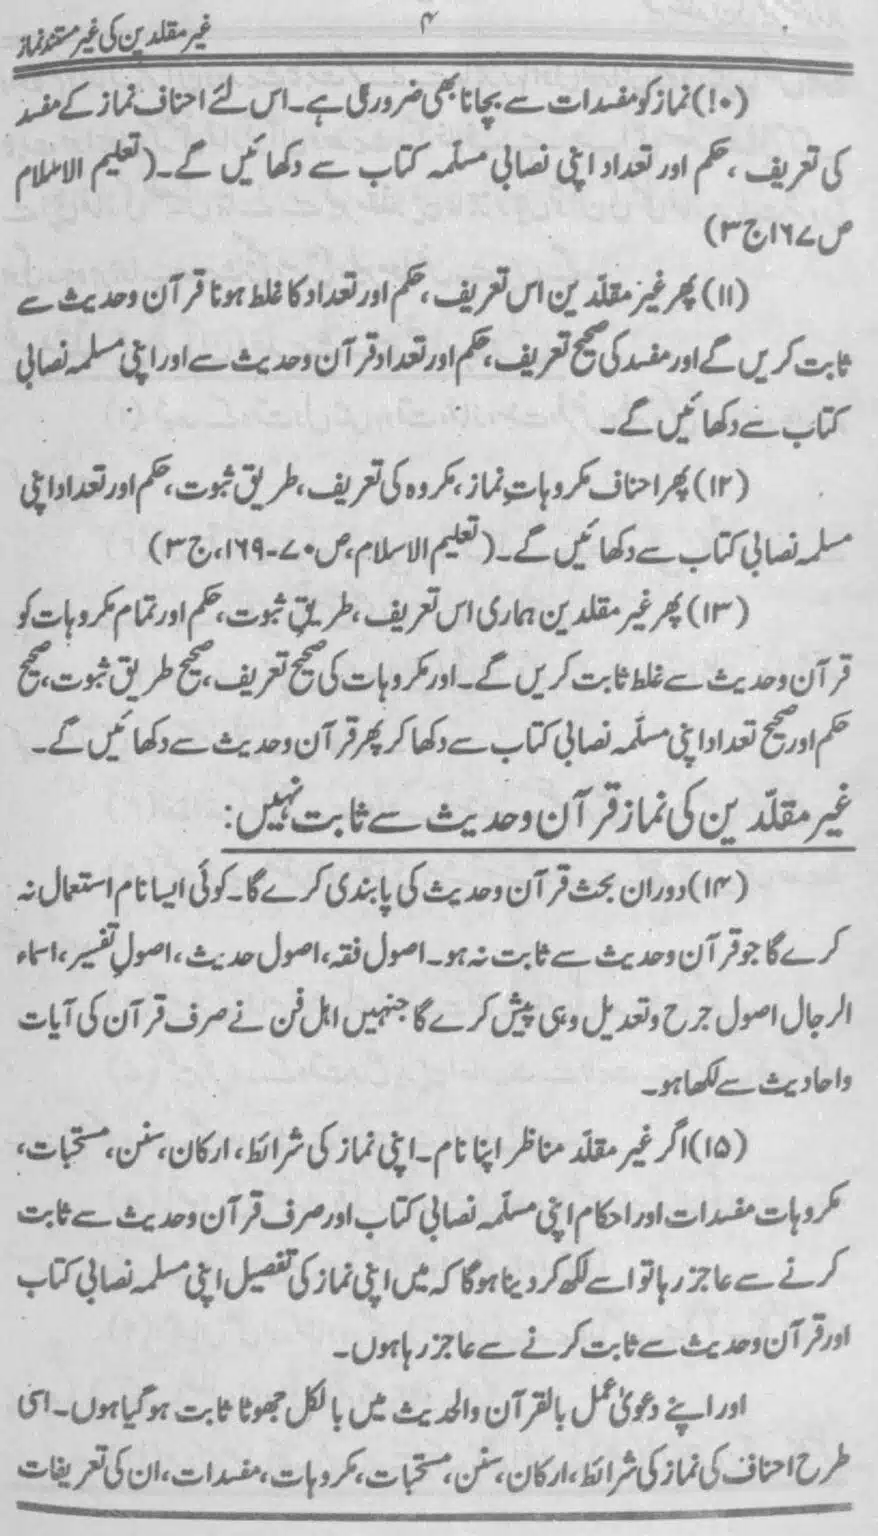 غیر مقلدین کی غیر مستند نماز
۴
(۱۰) نماز کو مفسدات سے بچانا بھی ضروری ہے۔ اس لئے احناف نماز کے مفسد
کی تعریف، حکم اور تعداد اپنی نصابی مسلّمہ کتاب سے دکھائیں گے۔ (تعلیم الاسلام
ص ۱۶۷ ج ۳)
(۱۱) پھر غیر مقلّدین اس تعریف، حکم اور تعداد کا غلط ہونا قرآن وحدیث سے
ثابت کریں گے اور مفسد کی صحیح تعریف، حکم اور تعداد قرآن وحدیث سے اور اپنی مسلمہ نصابی
کتاب سے دکھائیں گے۔
(۱۲) پھر احناف مکروہاتِ نماز، مکروہ کی تعریف، طریق ثبوت، حکم اور تعداد اپنی
مسلمہ نصابی کتاب سے دکھائیں گے۔ (تعلیم الاسلام، ص ۷۰-۱۶۹، ج ۳)
(۱۳) پھر غیر مقلدین ہماری اس تعریف، طریقِ ثبوت، حکم اور تمام مکروہات کو
قرآن وحدیث سے غلط ثابت کریں گے۔ اور مکروہات کی صحیح تعریف، صحیح طریق ثبوت، صحیح
حکم اور صحیح تعداد اپنی مسلّمہ نصابی کتاب سے دکھا کر پھر قرآن وحدیث سے دکھائیں گے۔
غیر مقلّدین کی نماز قرآن وحدیث سے ثابت نہیں:
(۱۴) دوران بحث قرآن وحدیث کی پابندی کرے گا۔ کوئی ایسا نام استعمال نہ
کرے گا جو قرآن وحدیث سے ثابت نہ ہو۔ اصول فقہ، اصول حدیث، اصولِ تفسیر، اسماء
الرجال اصول جرح وتعدیل وہی پیش کرے گا جنہیں اہل فن نے صرف قرآن کی آیات
واحادیث سے لکھا ہو۔
(۱۵) اگر غیر مقلّد مناظر اپنا نام۔ اپنی نماز کی شرائط، ارکان، سنن، مستحبات،
مکروہات مفسدات اور احکام اپنی مسلّمہ نصابی کتاب اور صرف قرآن وحدیث سے ثابت
کرنے سے عاجز رہا تو اسے لکھ کر دینا ہوگا کہ میں اپنی نماز کی تفصیل اپنی مسلمہ نصابی کتاب
اور قرآن وحدیث سے ثابت کرنے سے عاجز رہا ہوں۔
اور اپنے دعویٰ عمل بالقرآن والحدیث میں بالکل جھوٹا ثابت ہو گیا ہوں۔ اسی
طرح احناف کی نماز کی شرائط، ارکان، سنن، مستحبات، مکروہات، مفسدات، ان کی تعریفات